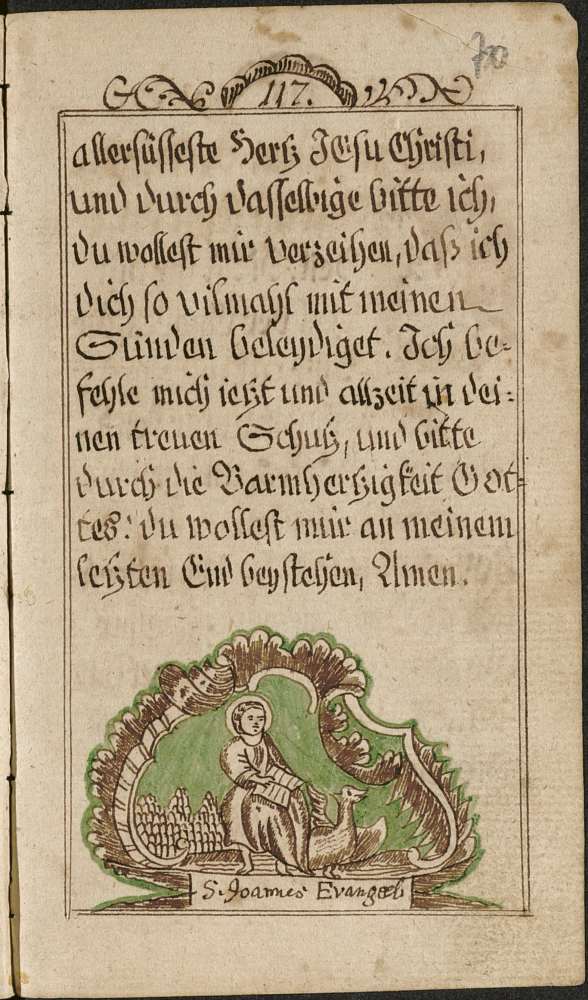 70
117.
allersüsseste Hertz JEsu Christi,
und durch dasselbige bitte ich,
du wollest mir verzeihen, daß ich
dich so vilmahl mit meinen
Sünden beleydiget. Ich be-
fehle mich ietzt und allzeit in dei-
nen treuen Schutz, und bitte
durch die Barmhertzigkeit Got-
tes: du wollest mir an meinem
letzten End beystehen, Amen.
S. Joannes Evangel: